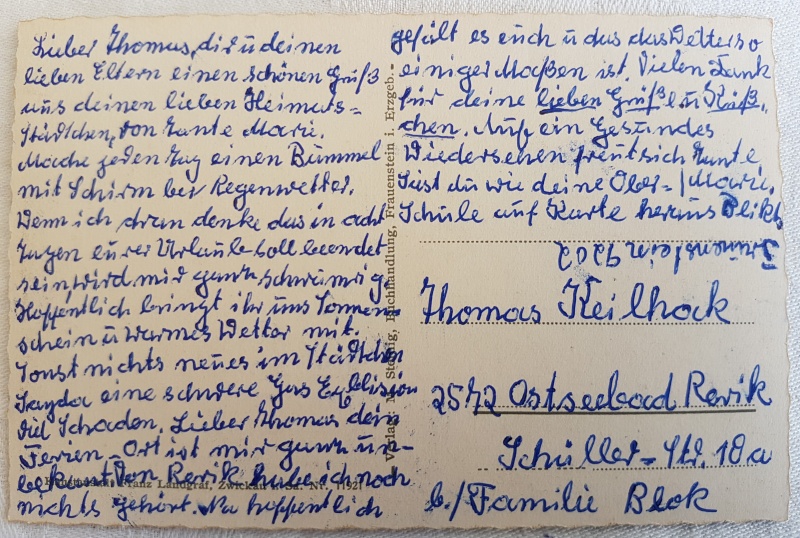 Lieber Thomas, dir u deinen
lieben Eltern einen schönen Gruß
aus deinen lieben Heimats-
Städtchen, von Tante Marie.
Mache jeden Tag einen Bummel
mit Schirm bei Regenwetter.
Wenn ich dran denke das in acht
Tagen eurer Urlaub soll beendet
sein, wird mir ganz schwumrig.
Hoffentlich bringt ihr uns Sonnen-
schein u warmes Wetter mit.
Sonst nichts neues im Städtchen
Sayda eine schwere Gas Explision
viel Schaden. Lieber Thomas dein
Ferien-Ort ist mir ganz un-
bekant von Rerik habe ich noch
nichts gehört. Na hoffentlich
gefält es euch u das das Wetter so
einiger Maßen ist. Vielen Dank
für deine lieben Grüße u Küß-
chen. Auf ein Gesundes
Wiedersehen freut sich Tante
Marie.
Siest du wie deine Ober-
Schule auf Karte heraus Blikt
Frauenstein 9202
Thomas Keilhack
2572 Ostseebad Rerik
Schiller-Str. 18a
b./Familie Blok
Verlag: M. Buchhandlung, Frauenstein i. Erzgeb.
Franz Landgraf, Zwickau i. Sa. Nr.